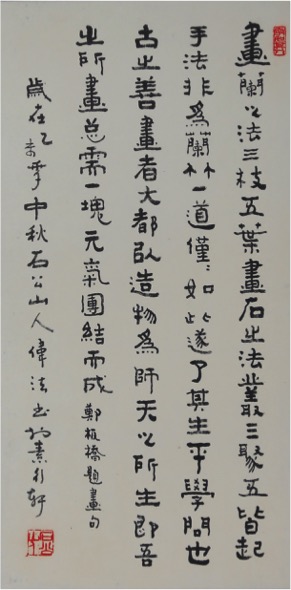 畫蘭之法三枝五葉畫石之法叢三聚五皆起
手法非為蘭竹一道僅〻如此遂了其生平學問也
古之善畫者大都以造物為師天之所生即吾
之所畫總需一塊元氣團結而成 鄭板橋題畫句
歲在乙未年中秋石公山人偉法書於素行軒